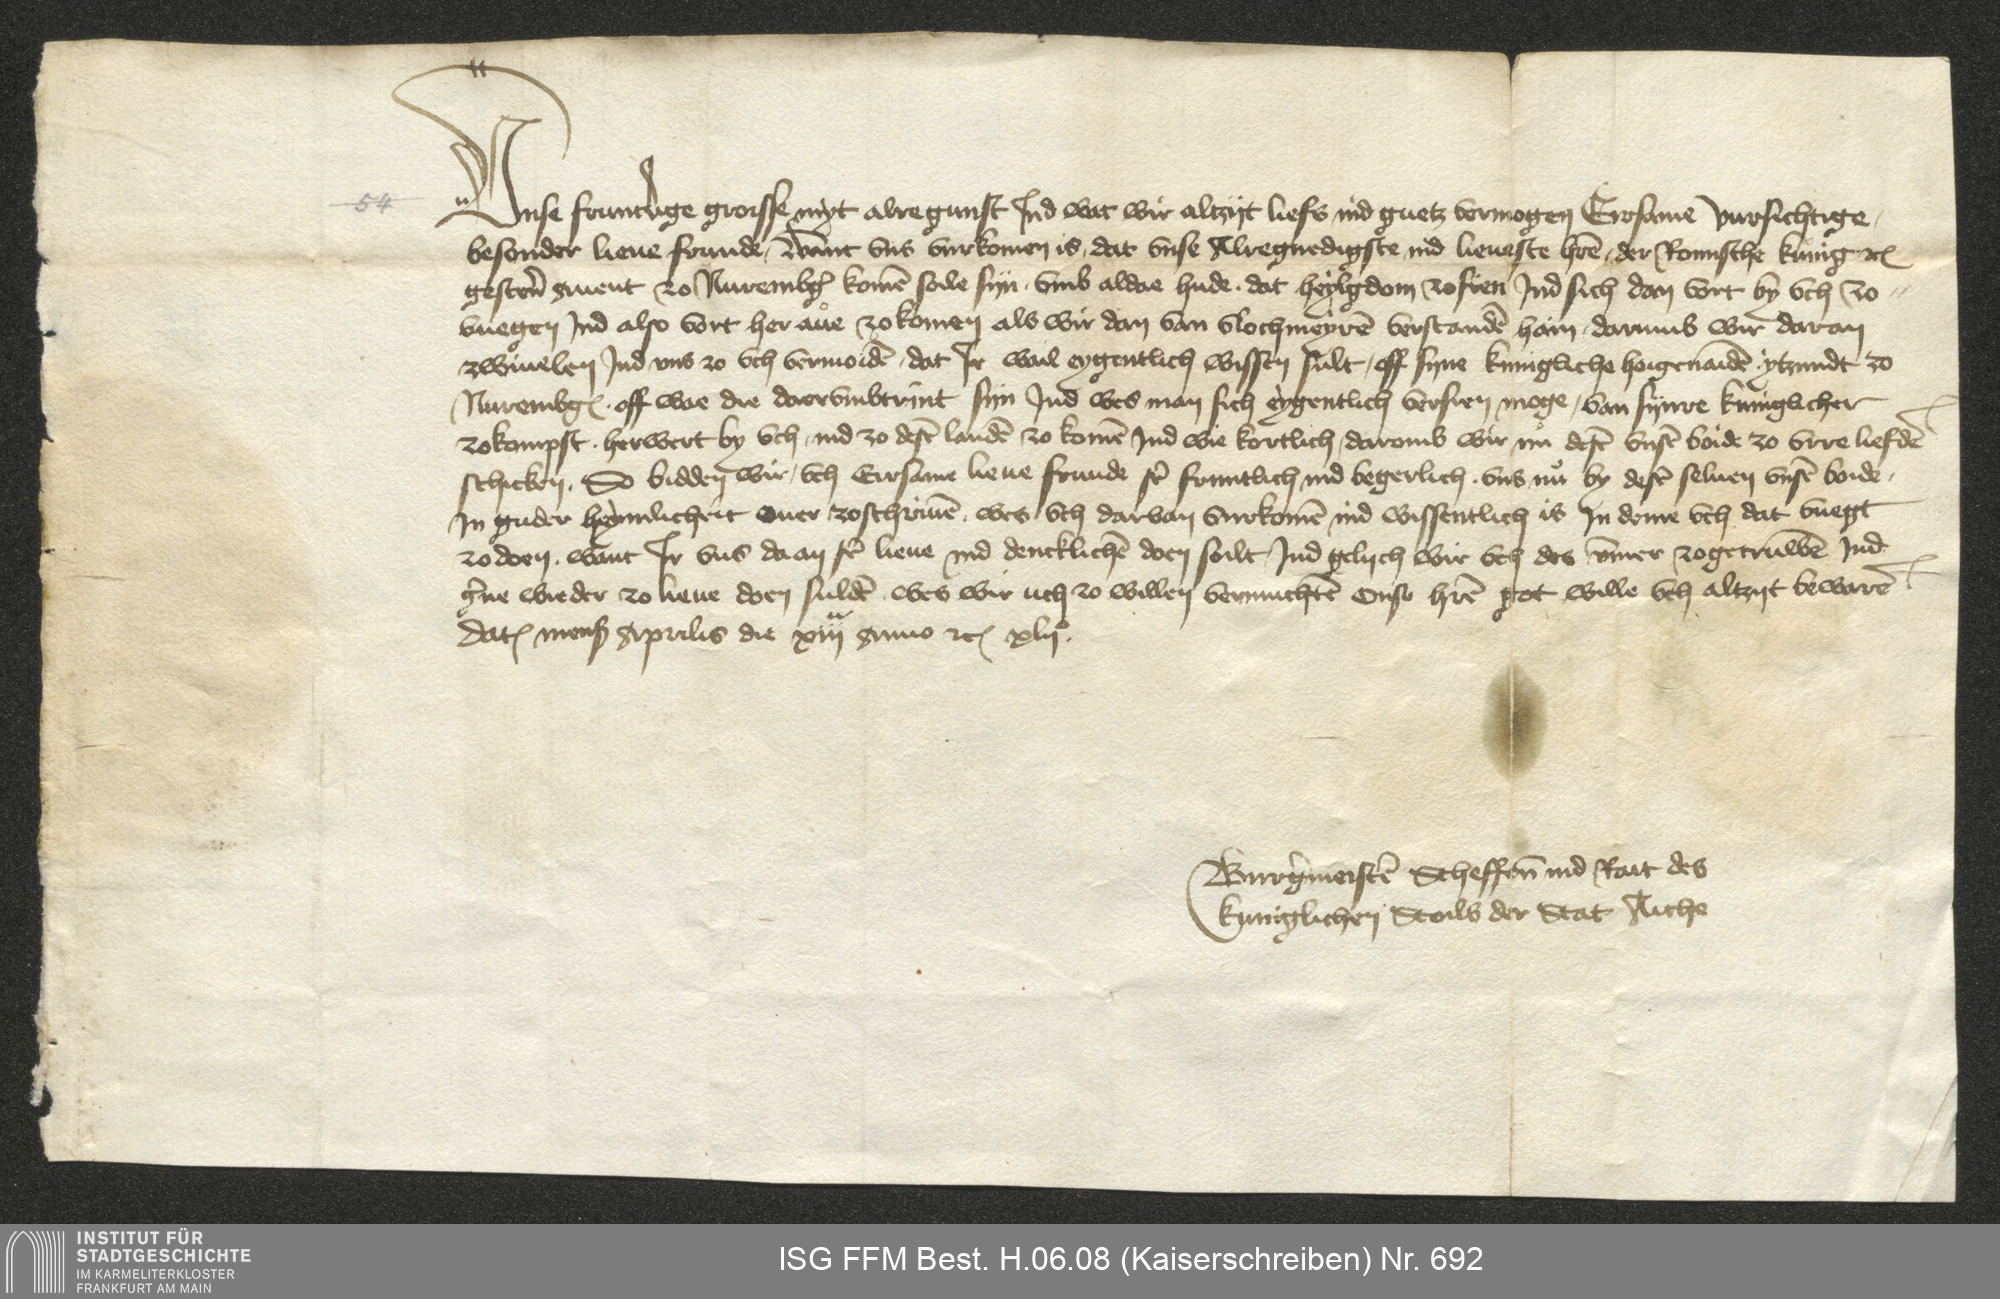 54
Unse fruntlige groisse myt alregunst Ind wat wir altzijt liefs ind guetz vermogen Eirsame vursichtige
besonder lieue frunde, Want vns vurkomen is, dat vnse Alregnedigste ind lieueste hre, der Romische kunig etc
gestern auent zo Nuremberg komen soile sijn, vmb aldae hude dat heylgdom zo sien Ind sich dan vort by vch zo
vuegen Ind also vort her aue zo komen als wir dan van Slochmeyren verstanden hain, darumb wir daran
zwiuelen Ind vns zo vch vermoiden, dat Ir wail eygentlich wissen sult, off syne kunigliche hoigenaiden ytzundt zo
Nuremberg, off wae die daervmbtrint sijn Ind wes man sich eygentlich versien moge, van synre kuniglicher
zokompst, herwert by vch, ind zo desen landen zo komen Ind wie kortlich, daromb wir nu desen vnsen boide zo vrre liefden
schicken. So bidden wir, vch Eirsame lieue frunde sere fruntlich ind begerlich, vns nu by desen seluen vnsen boide,
In guder heymlicheit ouer zoschriuen, wes vch darvan vurkomen ind wissentlich is In deme vch dat vuegt
zo doen, want Ir vns daan sere lieue ind dencklichen doen soilt, Ind gelijch wir vch des vmmer zogetruwen Ind
gerne wieder zo lieue doen sulden, wes wir uch zo willen vermuchten Onse hre got wille vch altzijt bewaren
Dat mens Aprilis die xiij Anno etc xlijo
Burgermeistere Scheffenn ind Rait des
kuniglichen Stoils der Stat Aiche
INSTITUT FÜR
STADTGESCHICHTE
IM KARMELITERKLOSTER
FRANKFURT AM MAIN
ISG FFM Best. H.06.08 (Kaiserschreiben) Nr. 692